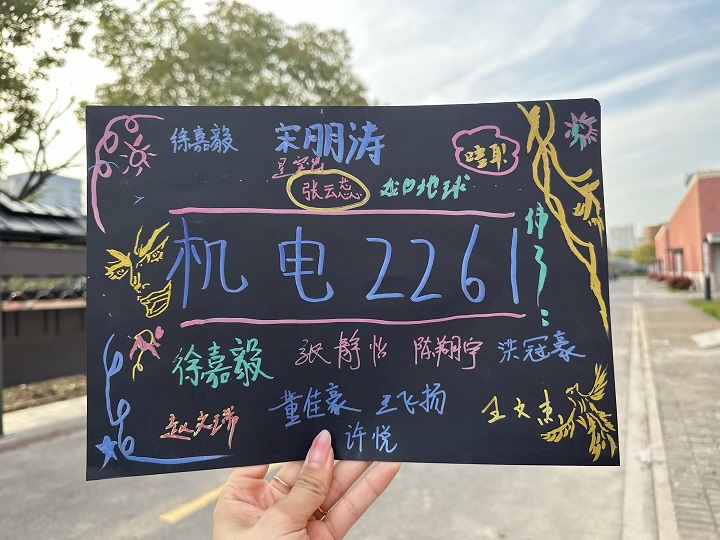 徐嘉毅 宋朋涛
张云蕊 出口地球
机电2261
徐嘉毅 张静怡 陈翔宇 洪冠豪
赵文瑞 董佳豪 王飞扬 王文杰
许悦